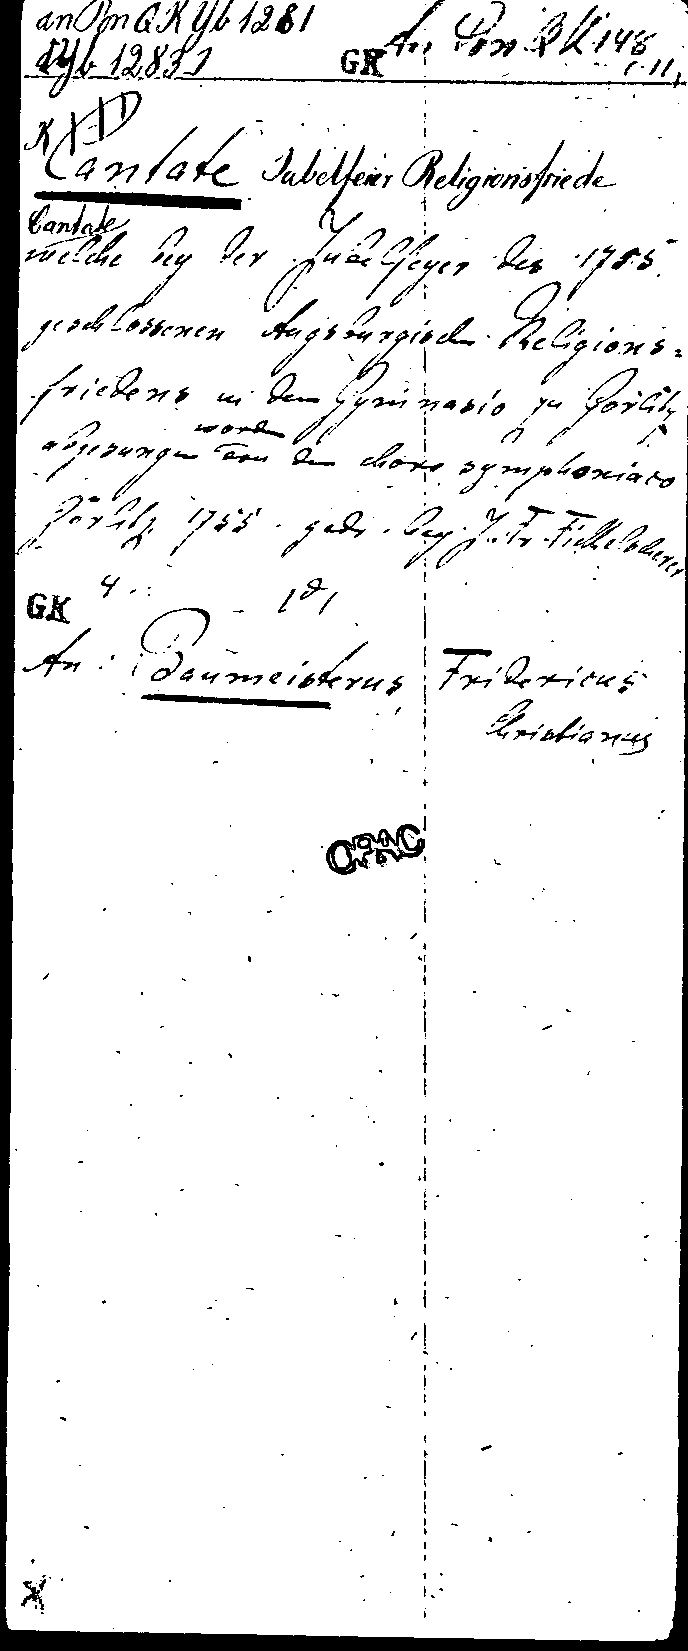 an Pn QK Yb 1281
dYb 1283
GK An Pon QK 148
Cantate Jubelfeier Religionsfriede
Cantate
welche bey der Jubelfeyer des 1755
geschlossenen Augsburgischen Religions=
friedens in dem Gymnasio zu Görlitz
worden
abgesungen von dem choro symphoniaco
Görlitz 1755. gedr. bey J. Fr. Fickelscherer
4
GK
An: Baumeisterus, Fridericus
Christianus